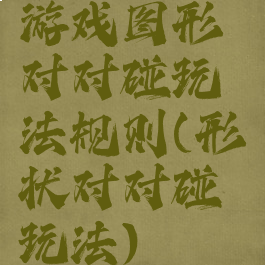 游戏图形
对对碰玩
法规则(形
状对对碰
玩法)